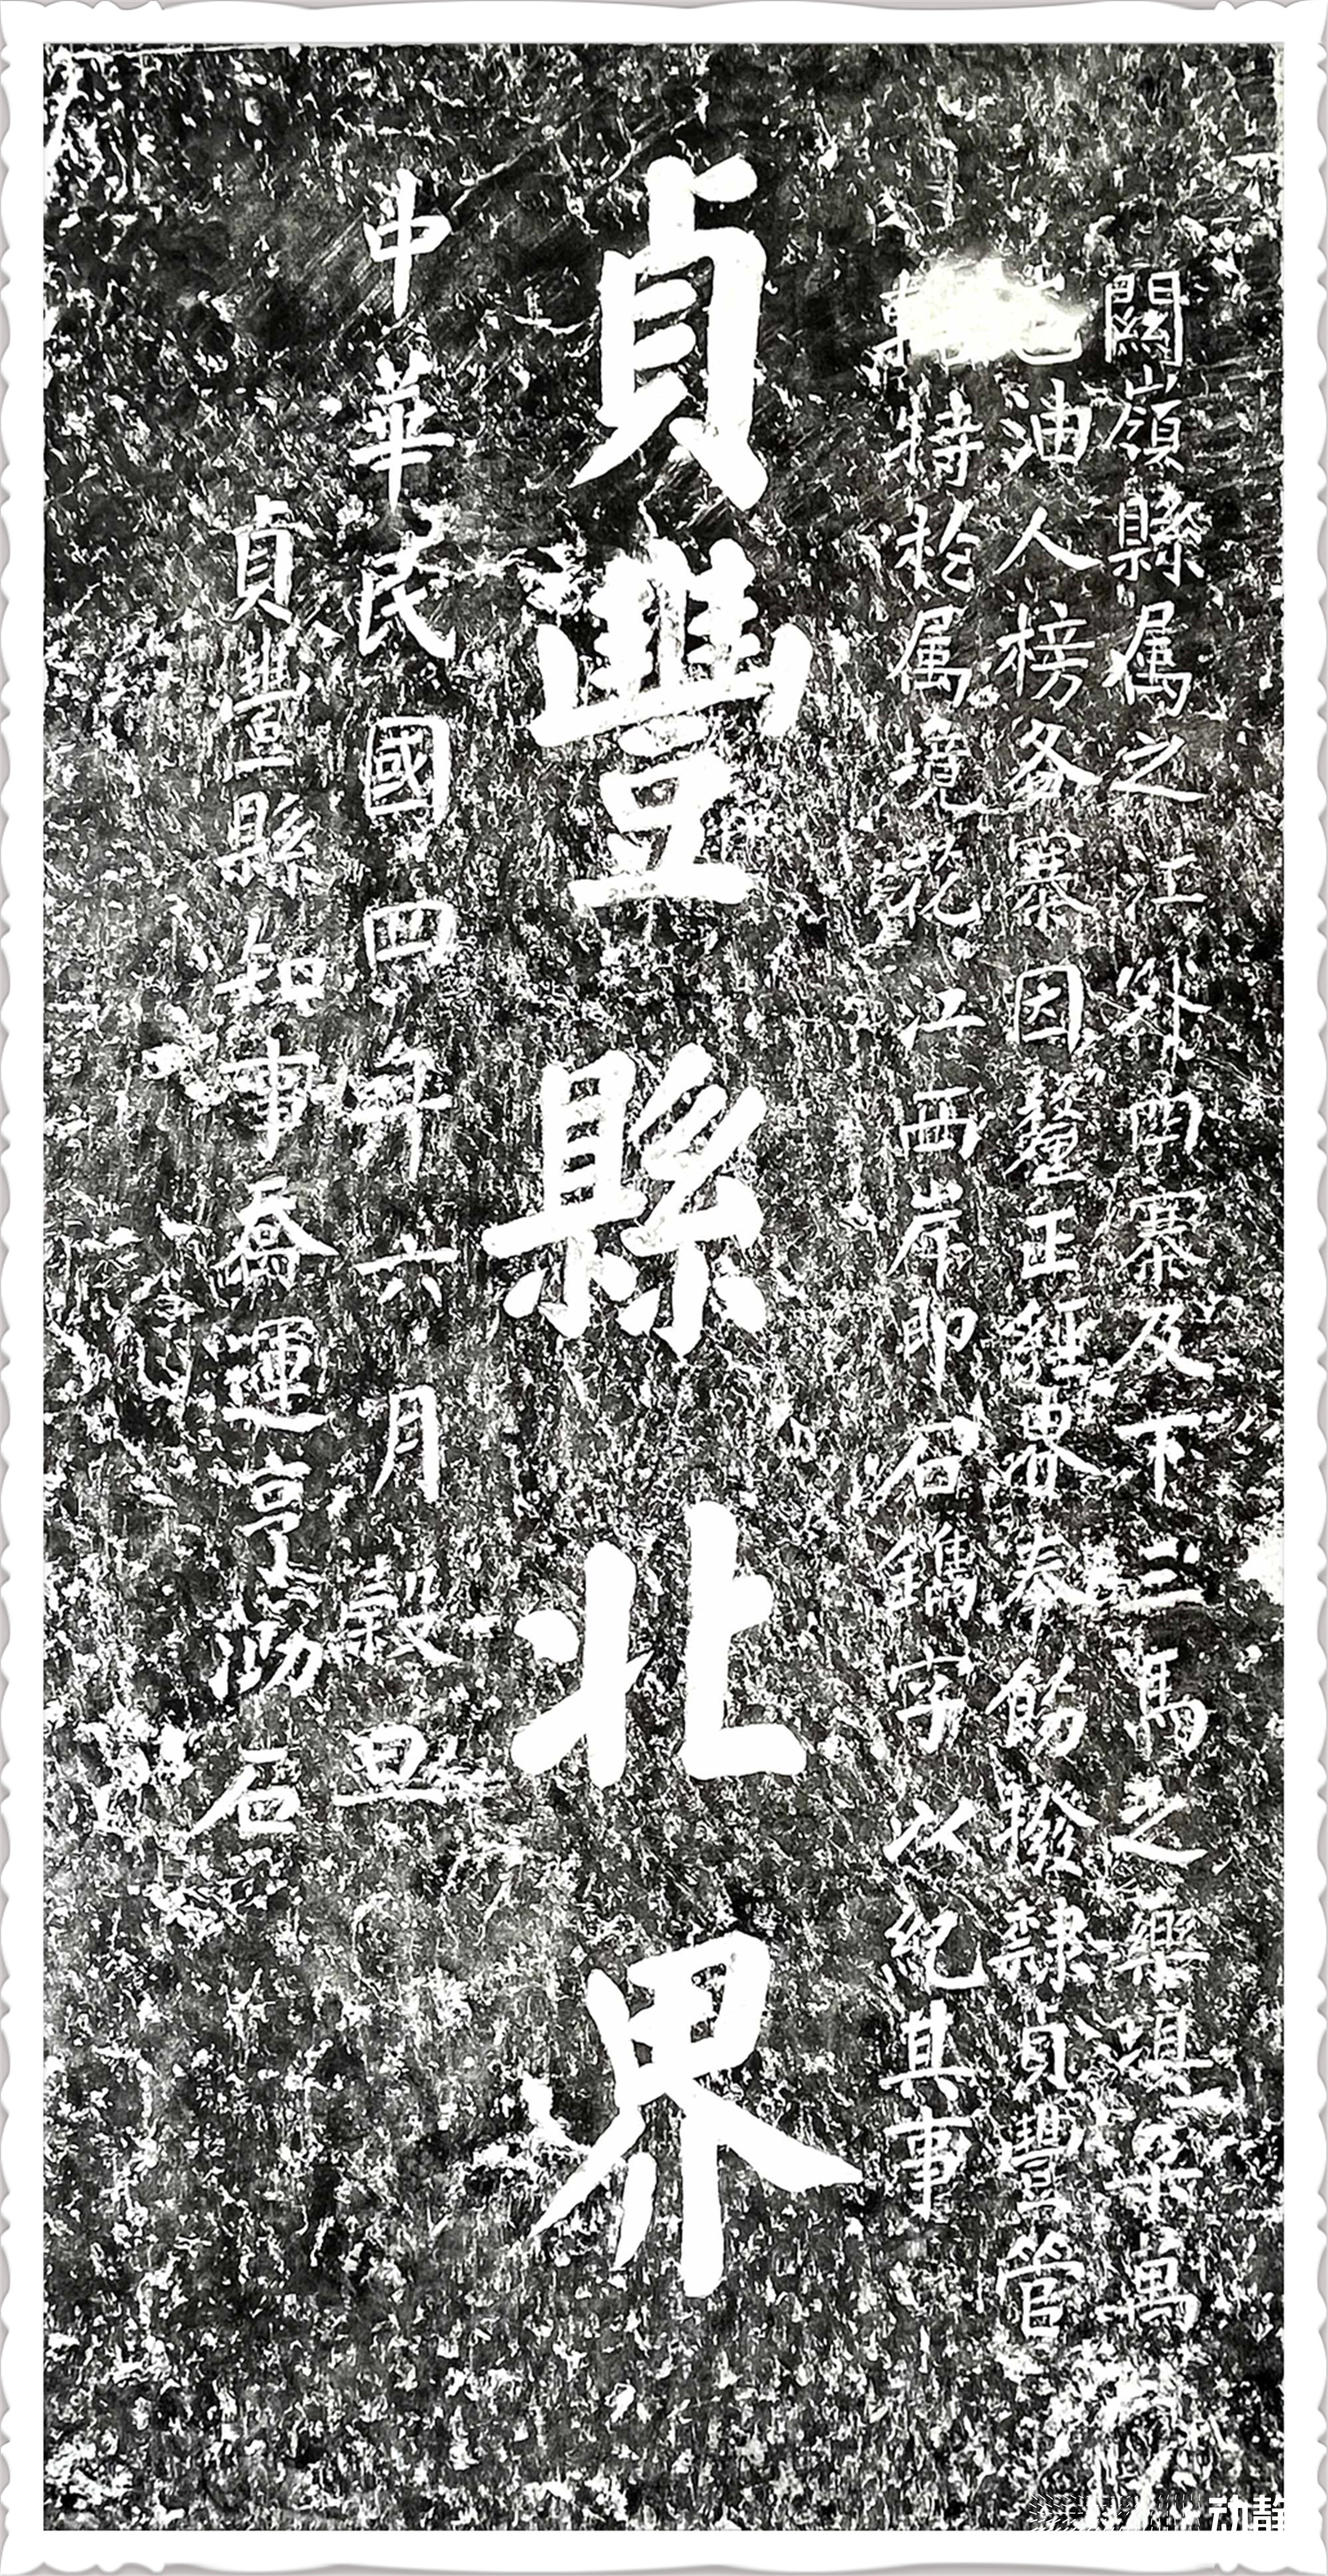 關嶺縣属之江外閑寨及下三馬之樂滇梁萬
油人榜各寨因釐正經界奉飭撥隸貞豐管
特於属境花江西岸即石鐫字以紀其事
貞豐縣北界
中華民國四年六月穀旦
貞豐縣知事喬運亨泐石
动静